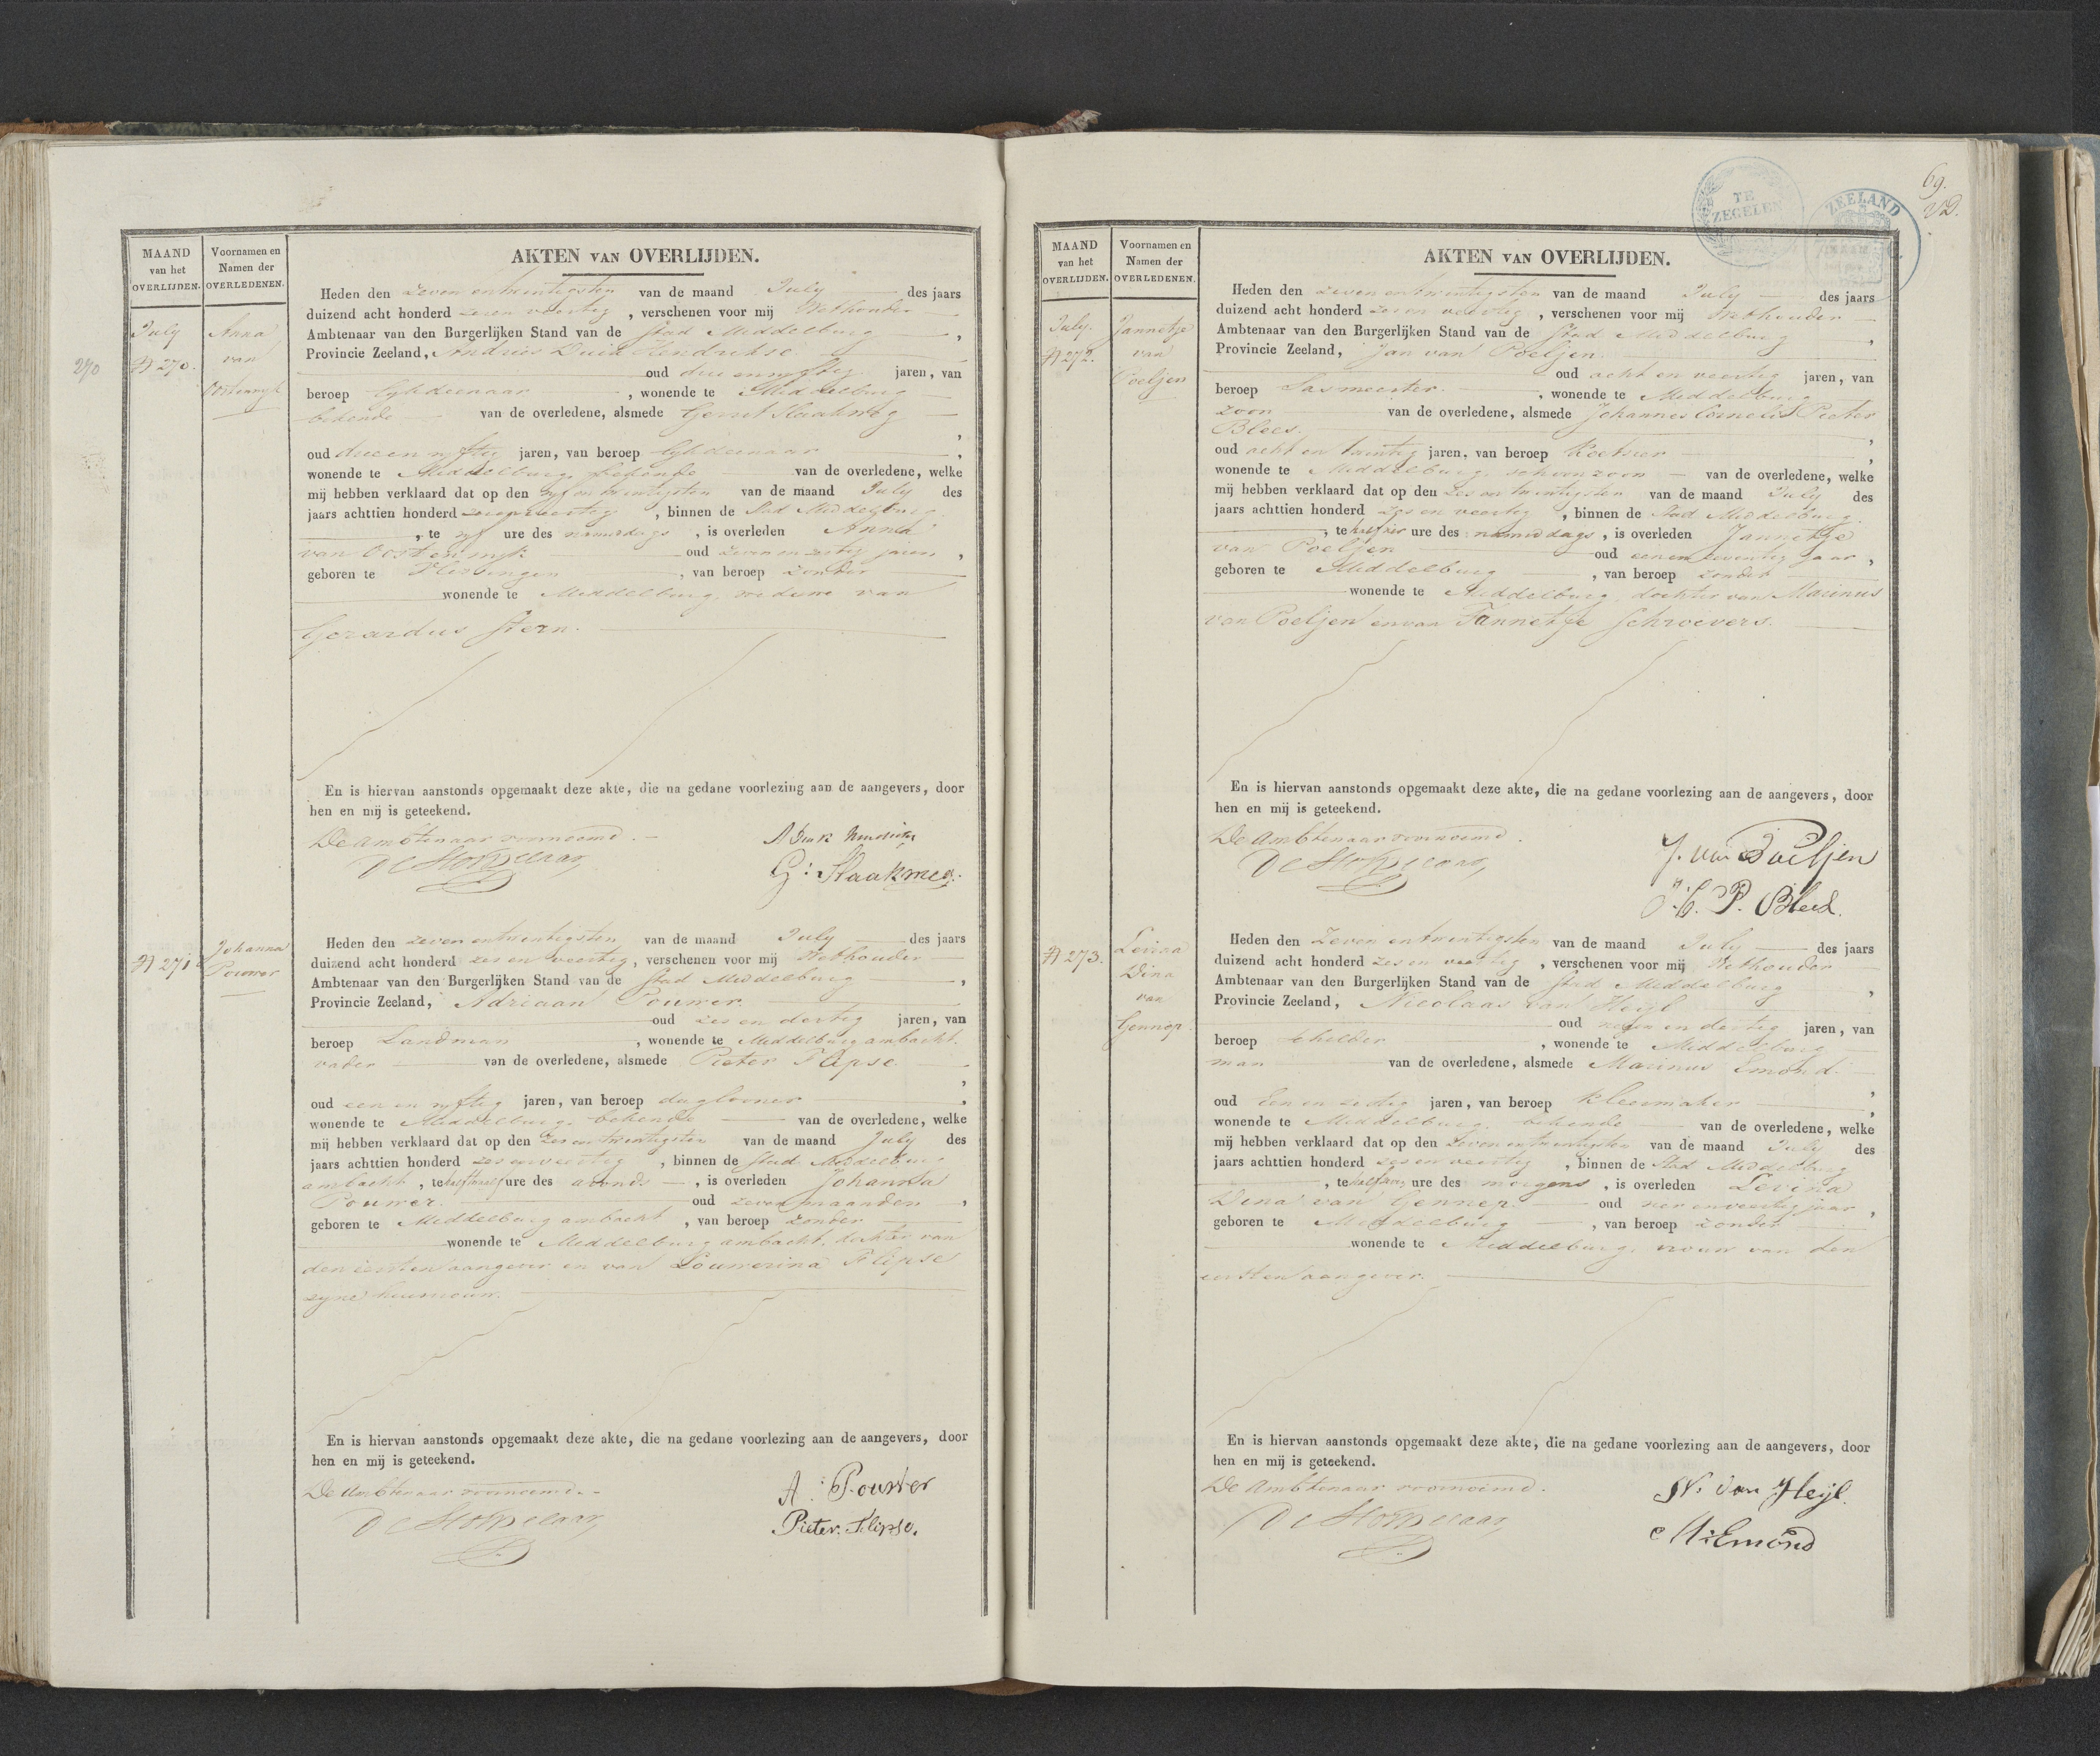 MAAND
van het
OVERLIJDEN.
Voornamen en
Namen der
OVERLEDENEN.
AKTEN VAN OVERLIJDEN.
270
July
N 270.
Anna
van
Oostenryk
Heden den zeven entwintigsten van de maand July des jaars
duizend acht honderd zes en veertig, verschenen voor mij Wethouder
Ambtenaar van den Burgerlijken Stand van de Stad Middelburg,
Provincie Zeeland, Andries Hendrikse
oud drie en vyftig jaren, van
beroep lykdienaar, wonende te Middelburg
bekende van de overledene, alsmede Gerrit
oud drie en vyftig jaren, van beroep lykdienaar,
wonende te Middelburg, bekende van de overledene, welke
mij hebben verklaard dat op den vyf en twintigsten van de maand July des
jaars achttien honderd zes en veertig, binnen de Stad Middelburg
, te vyf ure des namiddags, is overleden Anna
van Oostenryk oud zeven en zestig jaren,
geboren te Vlissingen, van beroep zonder
wonende te Middelburg, weduwe van
Gerardus Stern.
En is hiervan aanstonds opgemaakt deze akte, die na gedane voorlezing aan de aangevers, door
hen en mij is geteekend.
De Ambtenaar voornoemd.
G: Slaakmeg.
N 271
Johanna
Pouwer
Heden den zeven entwintigsten van de maand July des jaars
duizend acht honderd zes en veertig, verschenen voor mij Wethouder
Ambtenaar van den Burgerlijken Stand van de Stad Middelburg,
Provincie Zeeland, Adriaan Pouwer
oud zes en dertig jaren, van
beroep Landman, wonende te Middelburg ambacht.
vader van de overledene, alsmede Pieter Flipse
,
oud een en vyftig jaren, van beroep daglooner,
wonende te Middelburg, bekende van de overledene, welke
mij hebben verklaard dat op den zes en twintigsten van de maand July des
jaars achttien honderd zes en veertig, binnen de Stad Middelburg
ambacht, te half twaalf ure des avonds, is overleden Johanna
Pouwer. oud zeven maanden,
geboren te Middelburg ambacht, van beroep zonder
wonende te Middelburg ambacht, dochter van
den eersten aangever en van Louwerina Flipse
zyne huisvrouw.
En is hiervan aanstonds opgemaakt deze akte, die na gedane voorlezing aan de aangevers, door
hen en mij is geteekend.
De Ambtenaar voornoemd.
A: Pouwer
Pieter Flipse.
69.
TE
ZEGELEN
ZEELAND
MAAND
van het
OVERLIJDEN.
Voornamen en
Namen der
OVERLEDENEN.
AKTEN VAN OVERLIJDEN.
July.
N 272.
Jannetje
van
Poeljen
Heden den zeven entwintigsten van de maand July des jaars
duizend acht honderd zes en veertig, verschenen voor mij Wethouder
Ambtenaar van den Burgerlijken Stand van de Stad Middelburg,
Provincie Zeeland, Jan van Poeljen
oud acht en veertig jaren, van
beroep Sasmeester, wonende te Middelburg
zoon van de overledene, alsmede Johannes Cornelis Pieter
Blees.,
oud acht en twintig jaren, van beroep Koetsier,
wonende te Middelburg, schoonzoon van de overledene, welke
mij hebben verklaard dat op den zes en twintigsten van de maand July des
jaars achttien honderd zes en veertig, binnen de Stad Middelburg
, te half vier ure des namiddags, is overleden Jannetje
van Poeljen oud een en zeventig jaar,
geboren te Middelburg, van beroep zonder
wonende te Middelburg, dochter van Marinus
van Poeljen en van Tannetje Schroevers.
En is hiervan aanstonds opgemaakt deze akte, die na gedane voorlezing aan de aangevers, door
hen en mij is geteekend.
De Ambtenaar voornoemd.
J. van Poeljen
J. C. P. Blees.
N 273.
Levina
Dina
van
Gennep.
Heden den zeven entwintigsten van de maand July des jaars
duizend acht honderd zes en veertig, verschenen voor mij Wethouder
Ambtenaar van den Burgerlijken Stand van de Stad Middelburg,
Provincie Zeeland, Nicolaas van Heyl
oud en dertig jaren, van
beroep schilder, wonende te Middelburg
man van de overledene, alsmede Marinus Emond.
,
oud een en zestig jaren, van beroep kleermaker,
wonende te Middelburg, bekende van de overledene, welke
mij hebben verklaard dat op den zeven entwintigsten van de maand July des
jaars achttien honderd zes en veertig, binnen de Stad Middelburg
, te half ure des morgens, is overleden Levina
Dina van Gennep. oud vier en veertig jaar,
geboren te Middelburg, van beroep zonder
wonende te Middelburg, vrouw van den
eersten aangever.
En is hiervan aanstonds opgemaakt deze akte, die na gedane voorlezing aan de aangevers, door
hen en mij is geteekend.
De Ambtenaar voornoemd.
N. van Heyl.
M: Emond